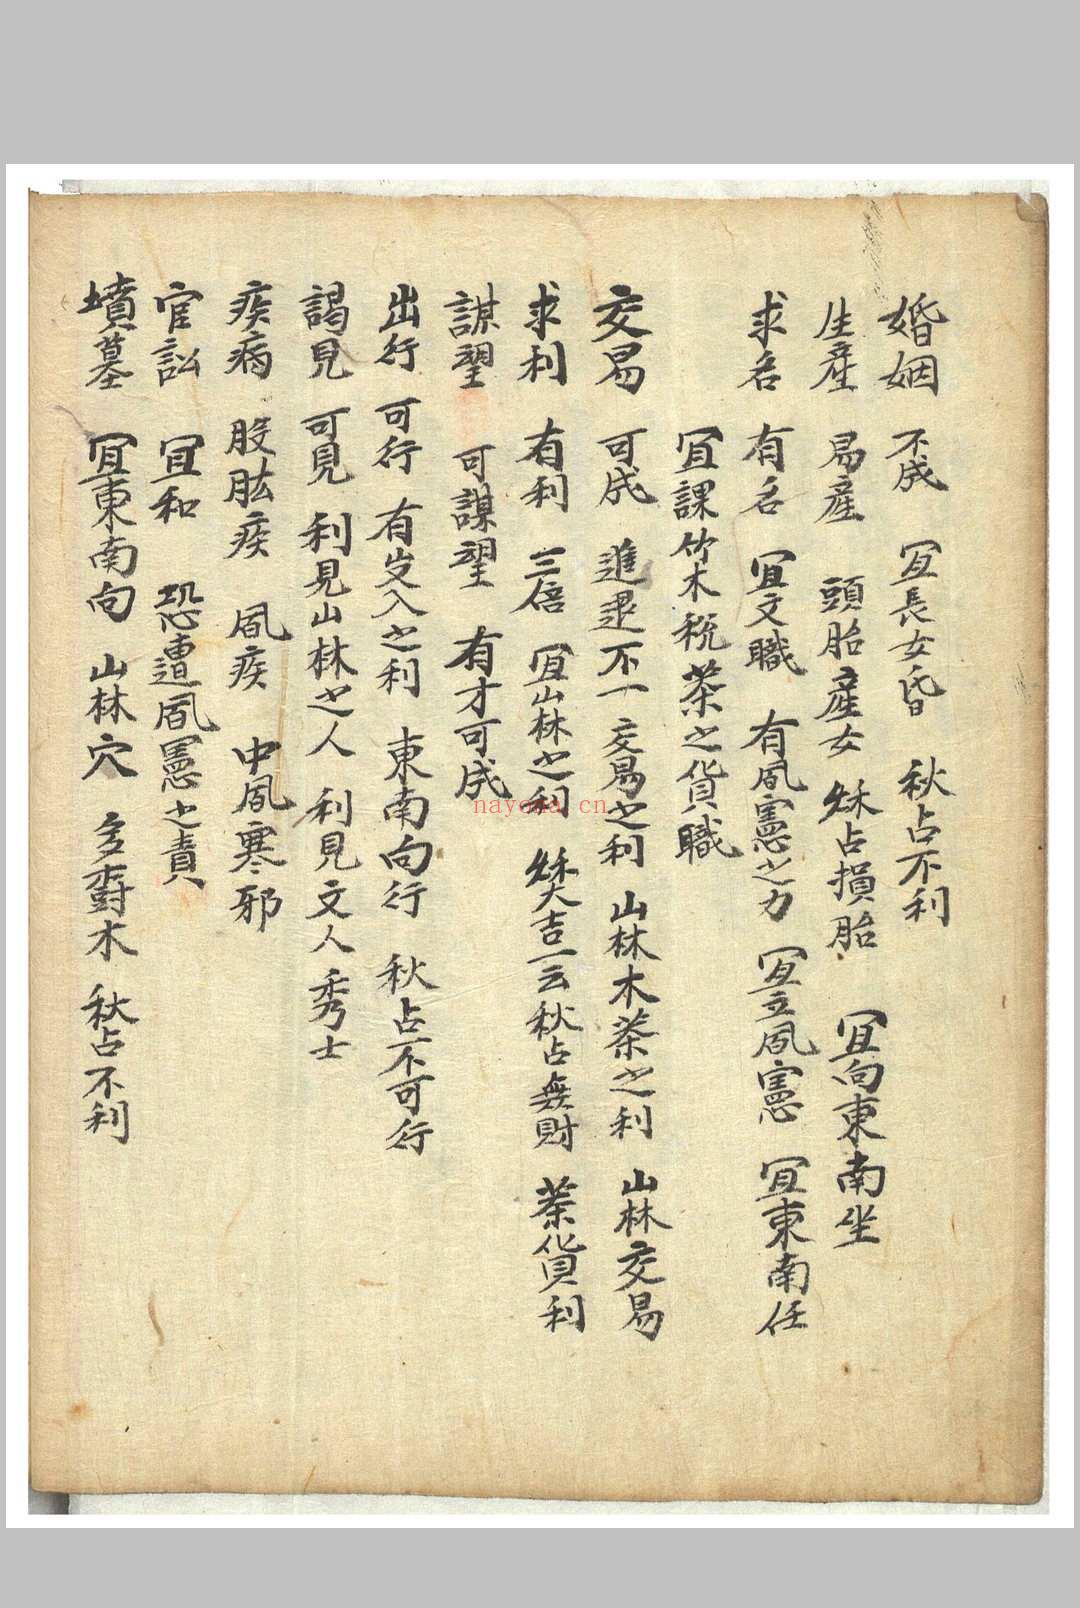 婚姻 不成 宜長女昏 秋占不利
生產 易產 頭胎產女 秌占損胎 宜向東南坐
求名 有名 宜文職 有風憲之力 宜立風憲 宜東南任
宜課竹木稅茶之貨職
交易 可成 進退不一 交易之利 山林木茶之利 山林交易
求利 有利 三倍 宜山林之利 大吉 一云秋占無財 茶貨利
謀望 可謀望 有才可成
出行 可行 有出入之利 東南向行 秋占不可行
謁見 可見 利見山林之人 利見文人秀士
疾病 股肱疾 風疾 中風寒邪
官訟 宜和 恐遭風憲之責
墳墓 宜東南向 山林穴 多樹木 秋占不利
nayona.cn